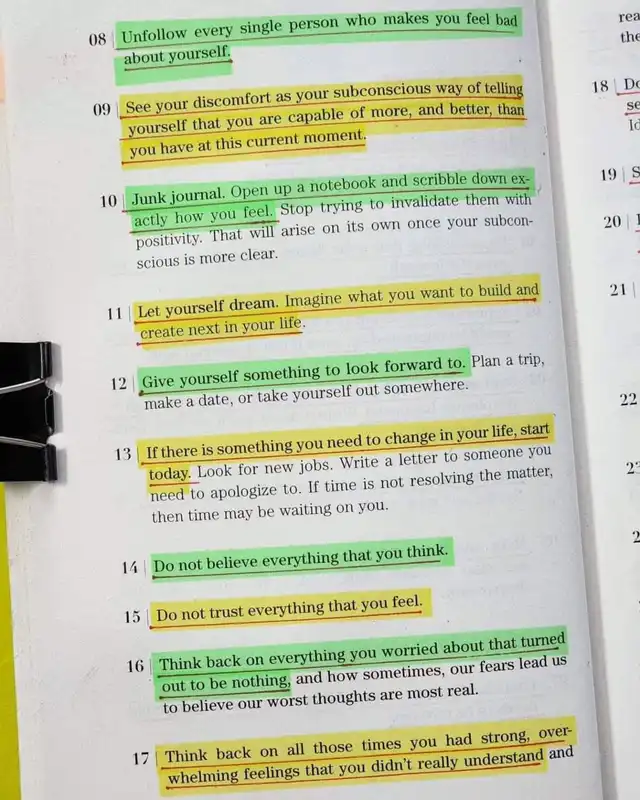 08 | Unfollow every single person who makes you feel bad
about yourself.
09 | See your discomfort as your subconscious way of telling
yourself that you are capable of more, and better, than
you have at this current moment.
10 | Junk journal. Open up a notebook and scribble down ex-
actly how you feel. Stop trying to invalidate them with
positivity. That will arise on its own once your subcon-
scious is more clear.
11 | Let yourself dream. Imagine what you want to build and
create next in your life.
12 | Give yourself something to look forward to. Plan a trip,
make a date, or take yourself out somewhere.
13 | If there is something you need to change in your life, start
today. Look for new jobs. Write a letter to someone you
need to apologize to. If time is not resolving the matter,
then time may be waiting on you.
14 | Do not believe everything that you think.
15 | Do not trust everything that you feel.
16 | Think back on everything you worried about that turned
out to be nothing, and how sometimes, our fears lead us
to believe our worst thoughts are most real.
17 | Think back on all those times you had strong, over-
whelming feelings that you didn't really understand and
18 |
19 |
20 |
21 |
22